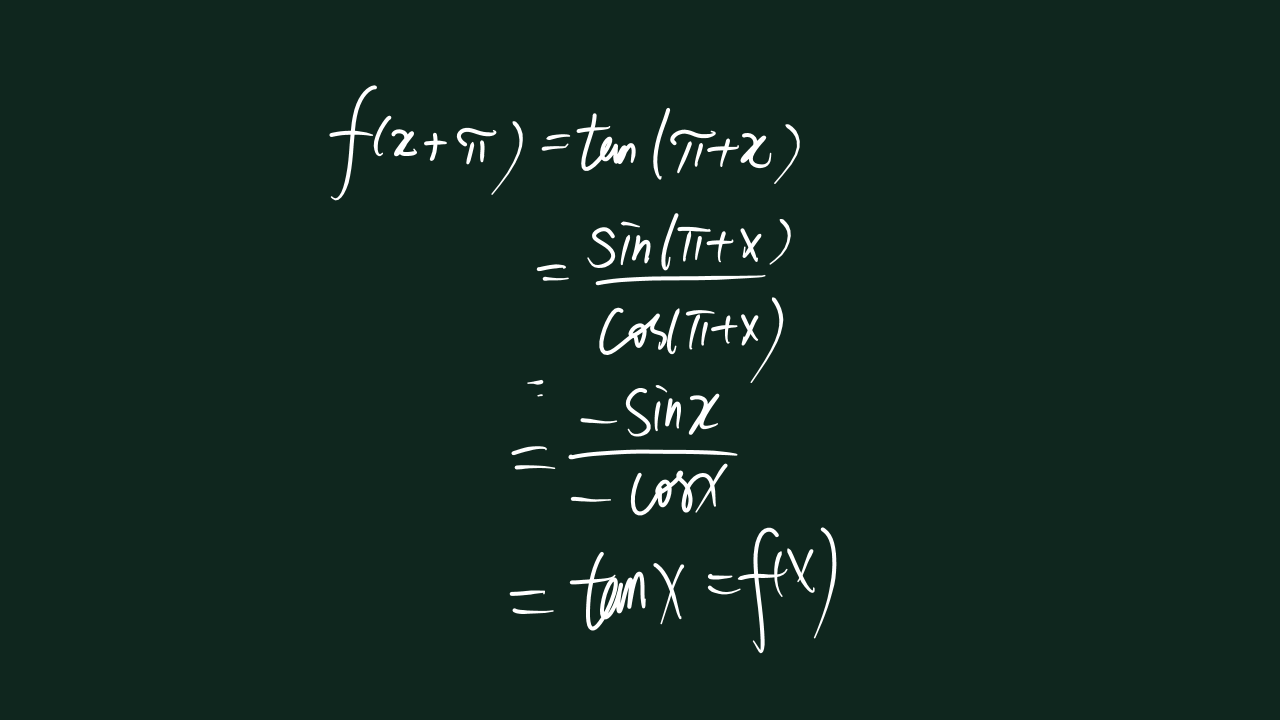 f(x+π) = tan(π+x)
= sin(π+x) / cos(π+x)
=
= -sinx / -cosx
= tanx = f(x)